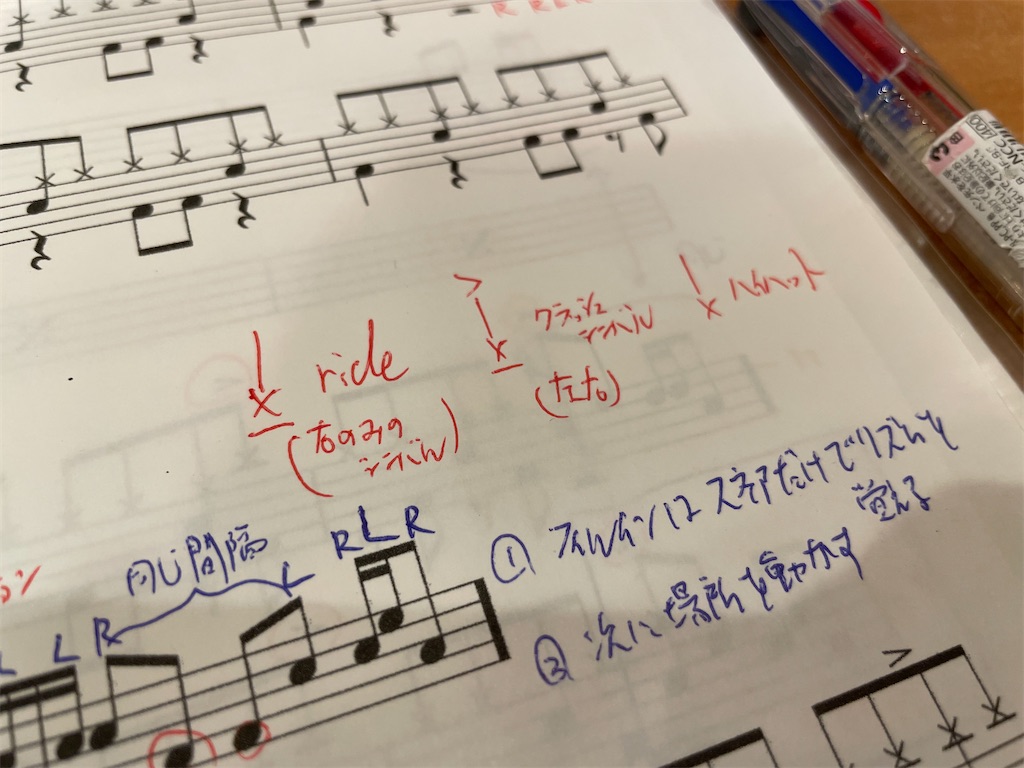 R R L R
ride
(右のみの
シンバル)
>
クラッシュ
シンバル
(左右)
ハイハット
同じ間隔
R L R
L L R
① フィルインは スネアだけでリズムを
覚える
② 次に 場所を動かす
>